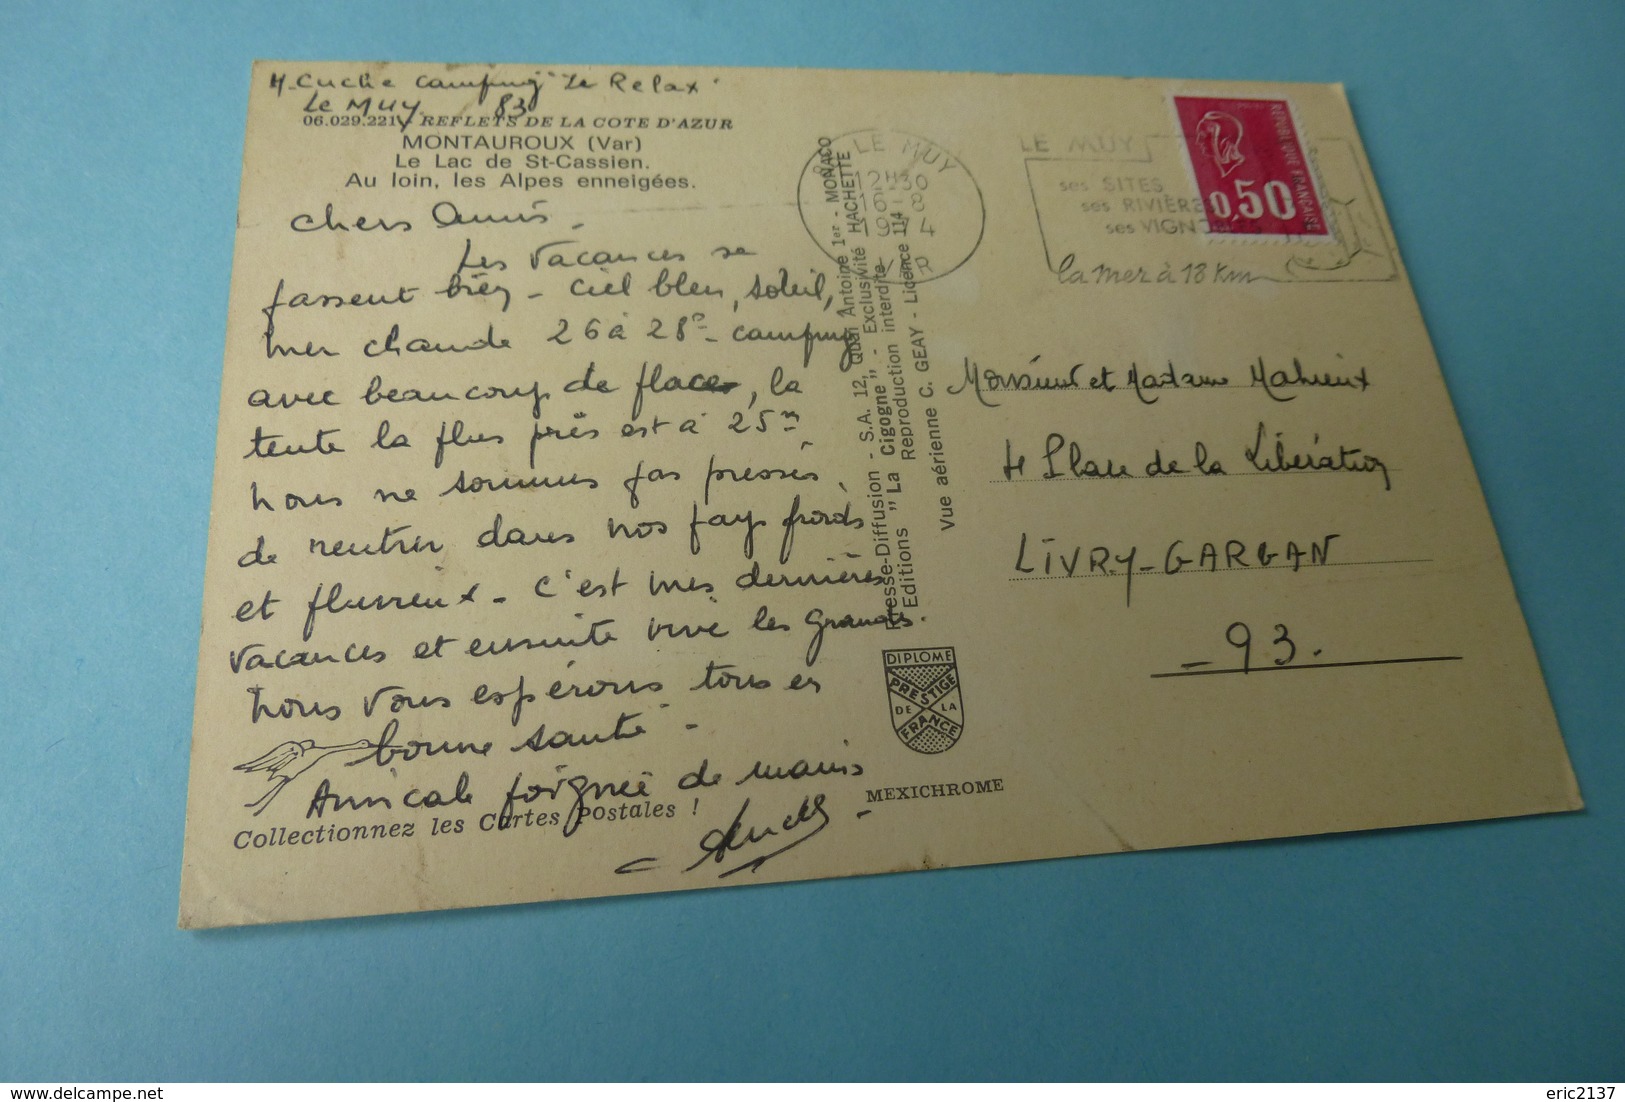 M. Cuche Camping "Le Relax"
Le Muy 83
06.029.221 REFLETS DE LA COTE D'AZUR
MONTAUROUX (Var)
Le Lac de St-Cassien.
Au loin, les Alpes enneigées.
Chers Amis.
Les Vacances se
passent bien - Ciel bleu, soleil,
mer chaude 26 à 28° - camping
avec beaucoup de place, la
tente la plus près est à 25m.
Nous ne sommes pas pressés
de rentrer dans nos pays froids
et pluvieux - C'est mes dernières
vacances et ensuite vive les grandes.
Nous vous espérons tous en
bonne santé -
Amicale poignée de mains
Cuche
Collectionnez les Cartes Postales !
Presse-Diffusion - S.A. 12, Quai Antoine 1er - MONACO
Editions "La Cigogne" - Exclusivité HACHETTE
Reproduction interdite
Vue aérienne C. GEAY - Licence 114
DIPLOME
PRESTIGE
DE LA
FRANCE
MEXICHROME
LE MUY
12H30
8
LE MUY
ses SITES
ses RIVIÈRES
ses VIGNOBLES
la mer à 18 Km
RÉPUBLIQUE FRANÇAISE
0,50
Monsieur et Madame Mahieux
4 Place de la Libération
LIVRY-GARGAN
- 93.
delcampe.net
eric2137